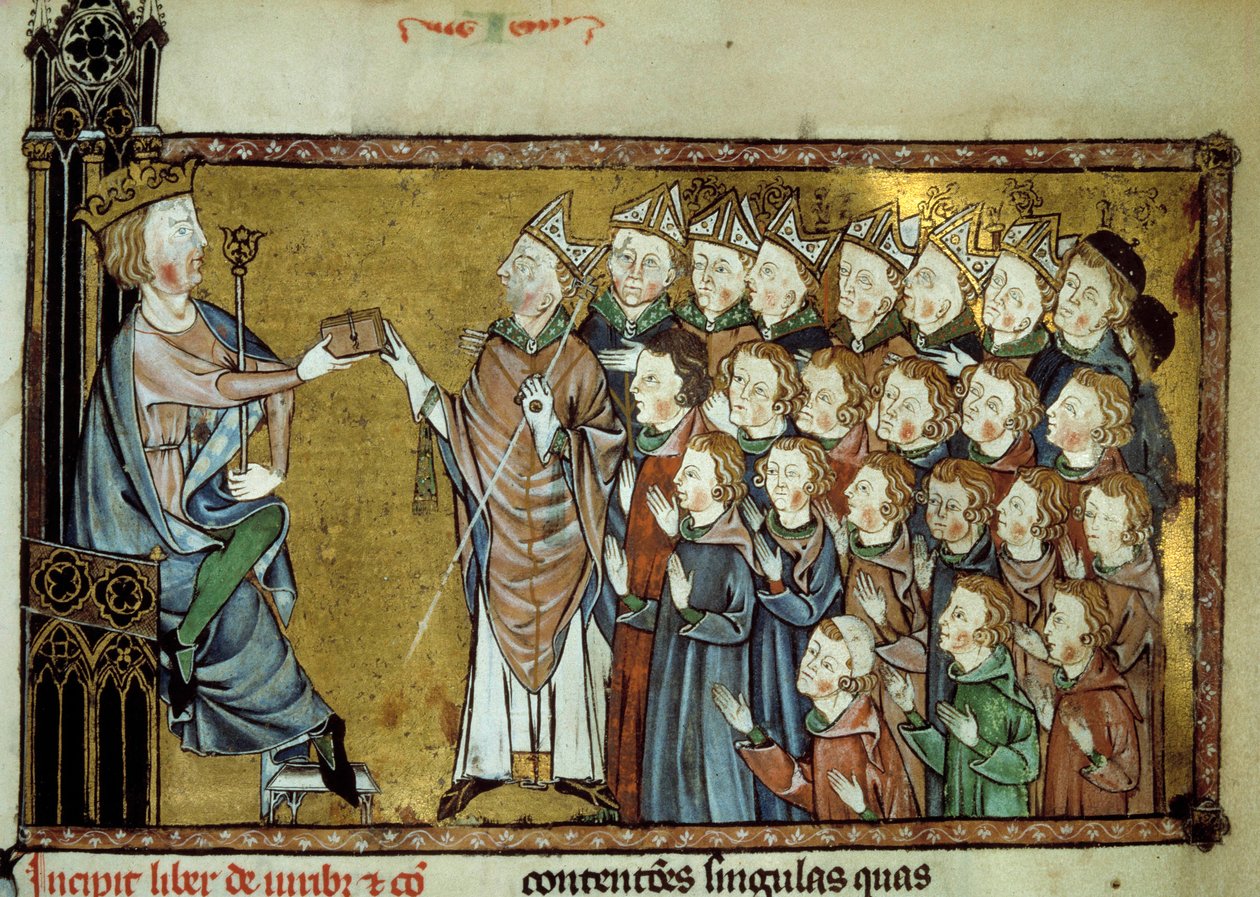 Incipit liber de iuribꝫ ⁊ cõ
contentões ſingulas quas